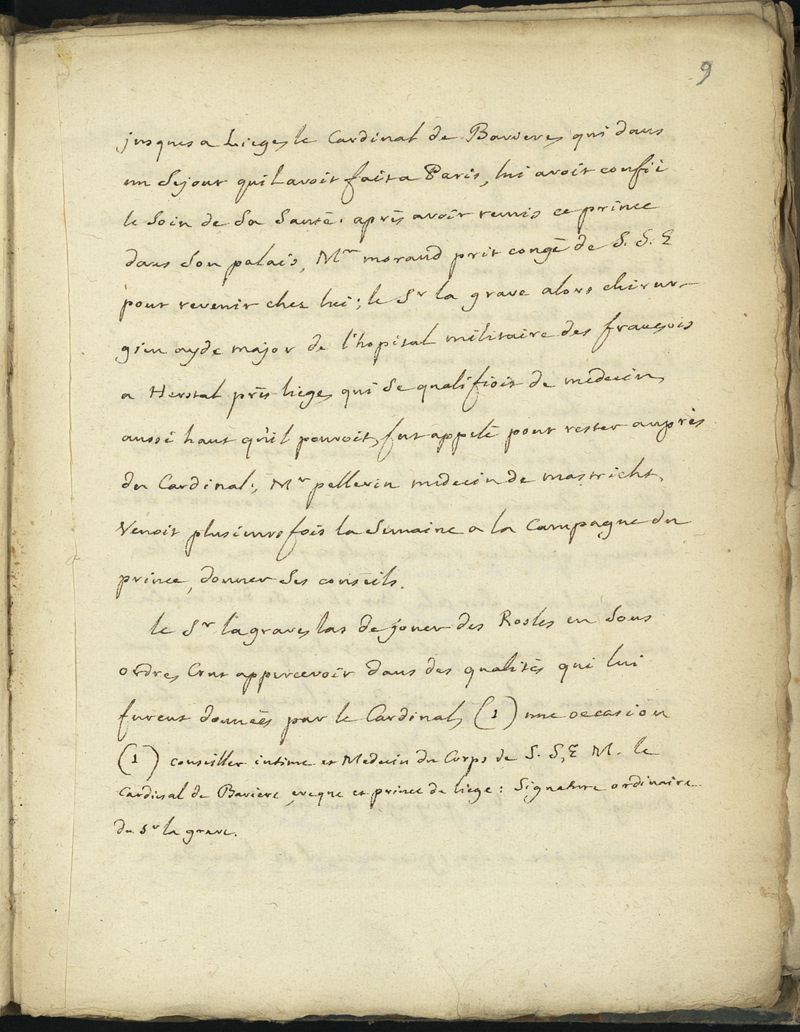 9
jusques a Liege, le Cardinal de Baviere, qui dans
un Sejour quil avoit fait a Paris, lui avoit confié
le Soin de Sa Santé. aprés avoir remis ce prince
dans Son palais, Mr morand prit congé de S. S. E
pour revenir chez lui; le Sr la grave alors chirur-
gien ayde major de l'hopital militaire des françois
a Herstal prés liege, qui Se qualifioit de medecin,
aussi haut qu'il pouvoit, fut appelé pour rester auprés
du Cardinal; Mr pellerin medecin de mastricht,
Venoit plusieurs fois la Semaine a la Campagne du
prince, donner Ses conseils.
le Sr lagrave, las de jouer des Rosles en Sous
ordre, Crut appercevoir dans des qualités qui lui
furent données par le Cardinal, (1) une occasion
(1) conseiller intime et Medecin du Corps de S. S. E M. le
Cardinal de Baviere, eveque et prince de liege: Signature ordinaire
du Sr la grave.